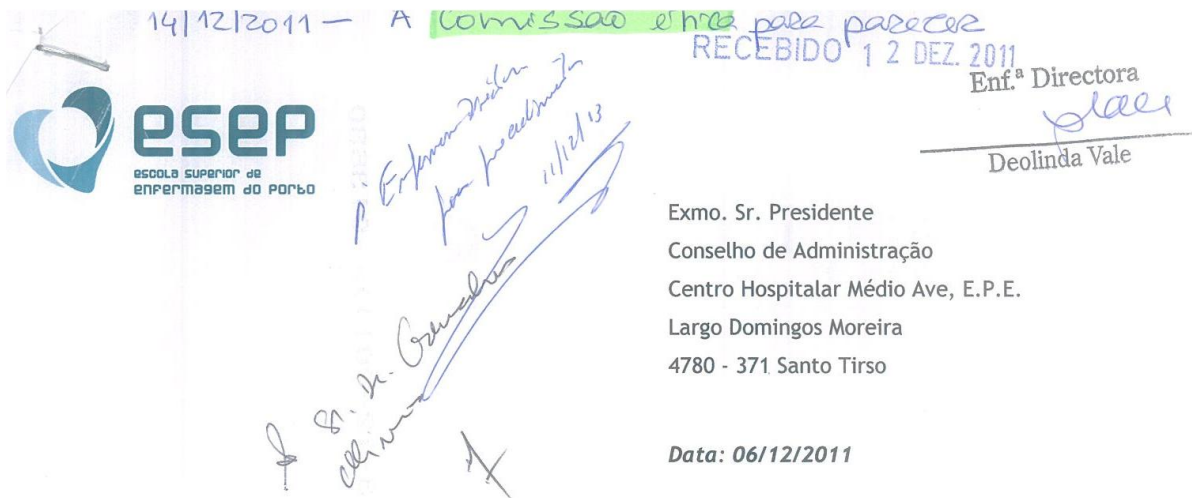 14/12/2011 — A Comissão ética para parecer
RECEBIDO 12 DEZ. 2011
Enf.ª Directora
Deolinda Vale
esep
escola superior de
enfermagem do porto
11/12/13
Sr. Dr.
Exmo. Sr. Presidente
Conselho de Administração
Centro Hospitalar Médio Ave, E.P.E.
Largo Domingos Moreira
4780 - 371 Santo Tirso
Data: 06/12/2011